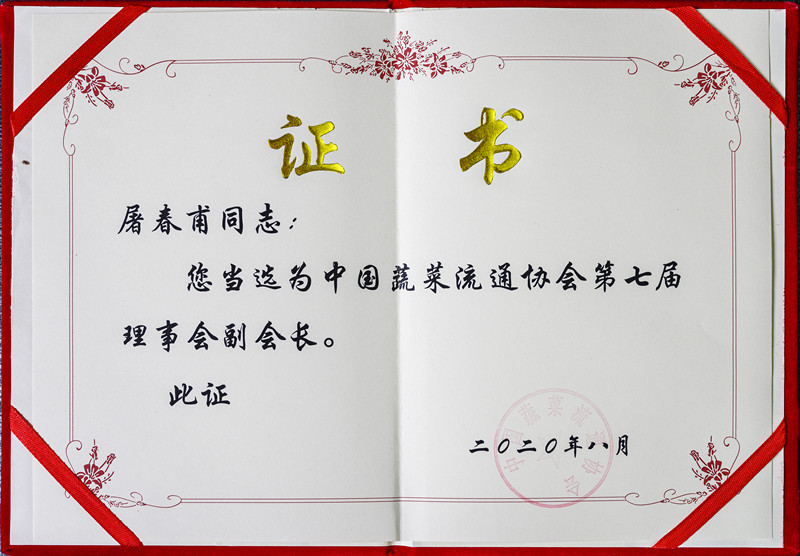 证 书
屠春甫同志：
您当选为中国蔬菜流通协会第七届
理事会副会长。
此证
二〇二〇年八月
中国蔬菜流通协会